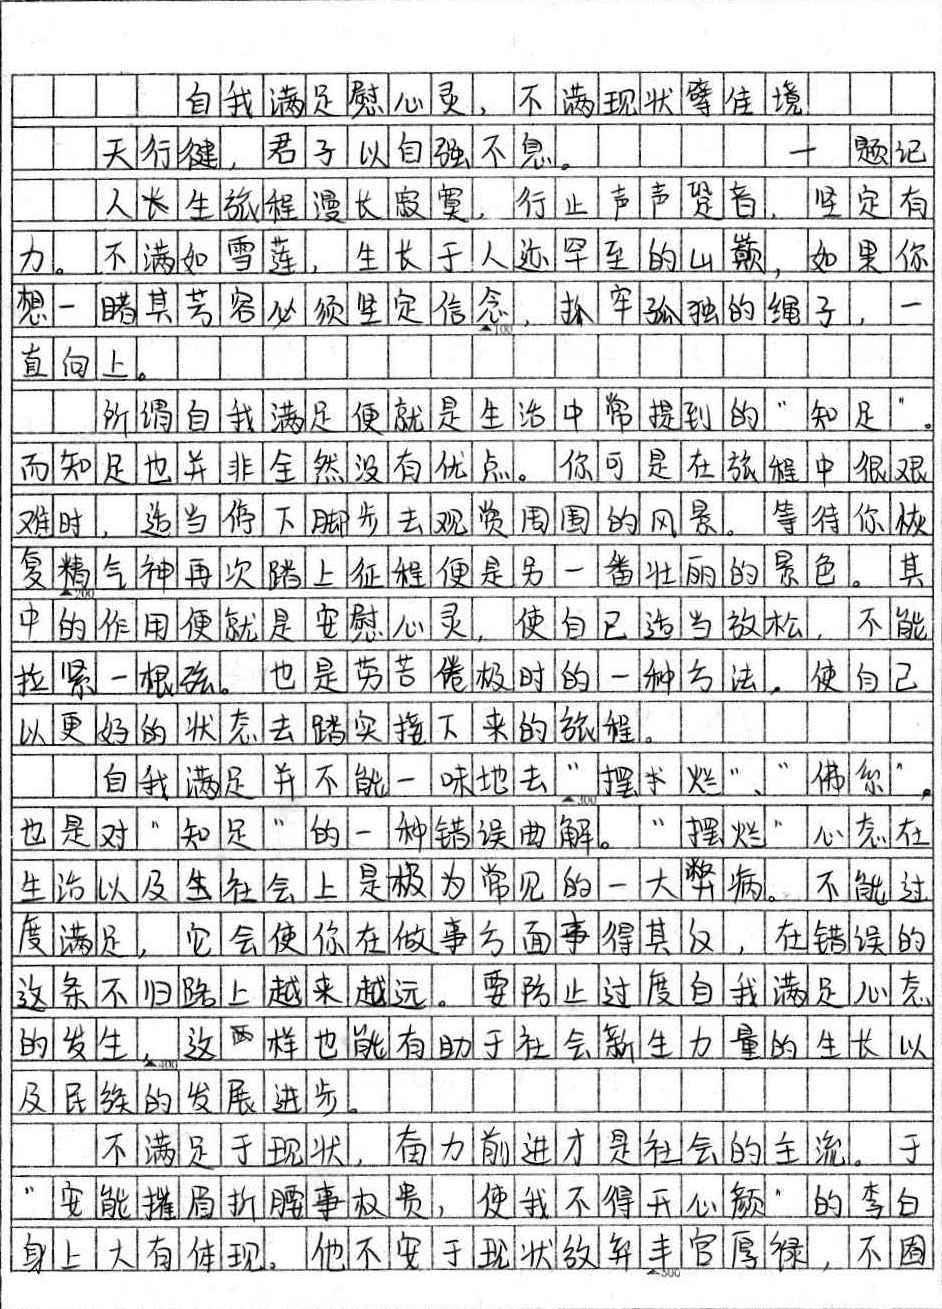 自我满足慰心灵，不满现状孽佳境
天行健，君子以自强不息。 一 题记
人长生旅程漫长寂寞，行止声声跫音，坚定有
力。不满如雪莲，生长于人迹罕至的山巅，如果你
想一睹其芳容必须坚定信念，抓牢孤独的绳子，一
直向上。
所谓自我满足便就是生活中常提到的“知足”。
而知足也并非全然没有优点。你可是在旅程中很艰
难时，适当停下脚步去观赏周围的风景。等待你恢
复精气神再次踏上征程便是另一番壮丽的景色。其
中的作用便就是安慰心灵，使自己适当放松，不能
拉紧一根弦。也是劳苦倦极时的一种方法，使自己
以更好的状态去踏实接下来的旅程。
自我满足并不能一味地去“摆烂”、“佛系”，
也是对“知足”的一种错误曲解。“摆烂”心态在
生活以及生社会上是极为常见的一大弊病。不能过
度满足，它会使你在做事方面事得其反，在错误的
这条不归路上越来越远。要防止过度自我满足心态
的发生，这样也能有助于社会新生力量的生长以
及民族的发展进步。
不满足于现状，奋力前进才是社会的主流。于
“安能摧眉折腰事权贵，使我不得开心颜”的李白
身上大有体现。他不安于现状放弃丰官厚禄，不困
200
300
400
500
100